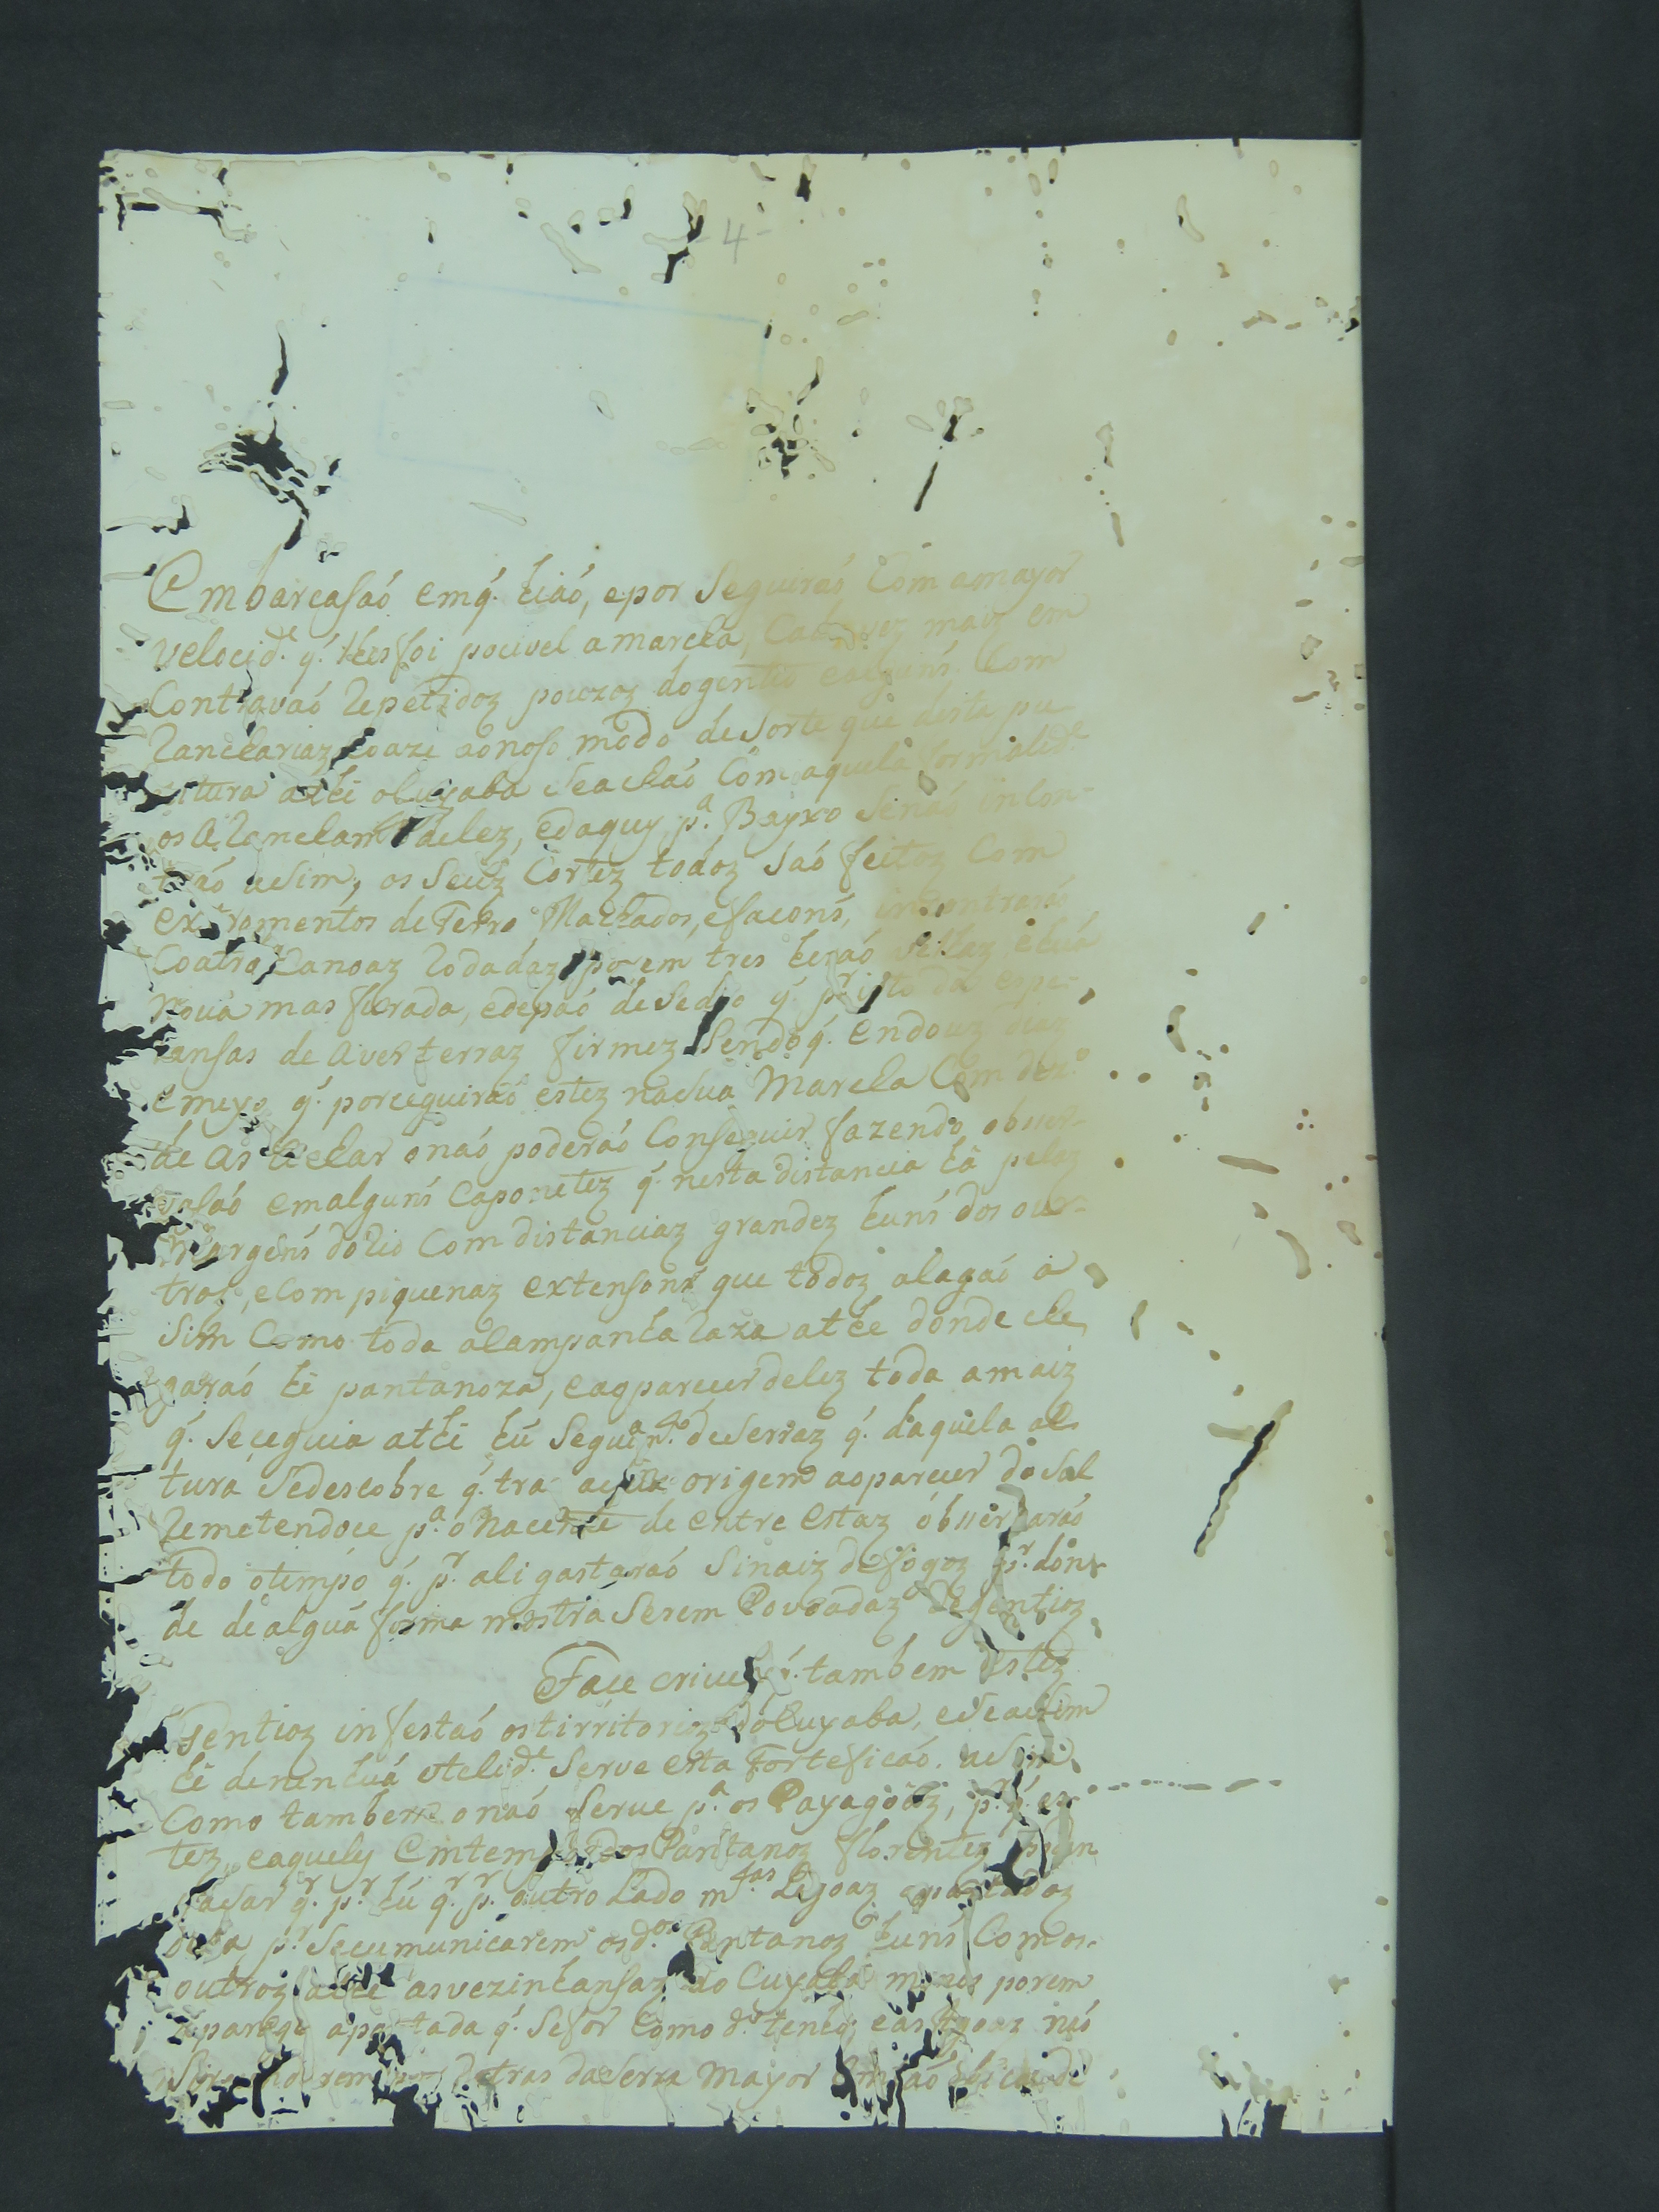 - 4 -
Embarcasaó emq̃. hiaó, epor Seguiraó Com amayor
velocid.e q̃. lhes foi pocivel amarcha, Cada vez maiz em
Contravaó Repetidoz pouzoz dogentio ealguns Com
Rancharíaz coaze aonoso modo de Sorte que désta
tura athé oCuyaba Seachaó Com aquela formalid.e
os Alo delez, edaquy p.a Bayxo Senaó incon-
traó asim, os Seuz Cortez todoz saó feitoz Com
extromentos de Ferro Machados, efacons, incontraraó
Coatro Canoaz Rodadaz porem tres heraó velhaz ehuã
nova mas furada, edepaó de Sedro q̃. p.r isto da espe-
ransas de aver terraz firmez Sendo q̃. endouz diaz
emeyo q̃. porceguiraó estez nasua Marcha Com dez.o
de as achar onaó poderaó Conseguir fazendo obuser-
vasaó emalguns Caponetez q̃. nesta distancia há pelaz
margens doRio Com distanciaz grandez huns dos ou-
tros, eCom piquenaz extensons que todoz alagaó a
Sim Como toda aCampanha Raza athe donde che
garaó hé pantanoza, eaoparecer delez toda amaiz
q̃. Seceguia athé hú Seguim.to deSerraz q̃. daquela al
tura Sedescobre q̃. tra asua origem aoparecer doSul
Remetendoce p.a oNacente de entre estaz óbuserbaraó
todo otempo q̃. p.r ali gastaraó Sinaiz defogoz p.r don-
de de alguá forma mostra Serem Povoadaz deGentioz
Face crivel q̃. tambem estez
Gentioz infestaó ostirritorioz doCuyaba, eSeasim
hé denenhuã utelid.e Serve esta Forteficaó. asim
Como tambem onaó Serve p.a os Payagoaz, p.r q̃. es
tez, eaquelz Emtem dos Pantanoz florentez
pasar q̃. p.r hú q̃.r p.r outro Lado m.tas Lagoaz apartadaz
desta p.r Secumunicarem osd.os Pantanoz huns Comos
outroz athe asvezinhansaz do Cuyaba menos porem
aparage apontada q̃. Sefor Como d.o tenho, eas Lagoaz naó
detras daSerra Mayor